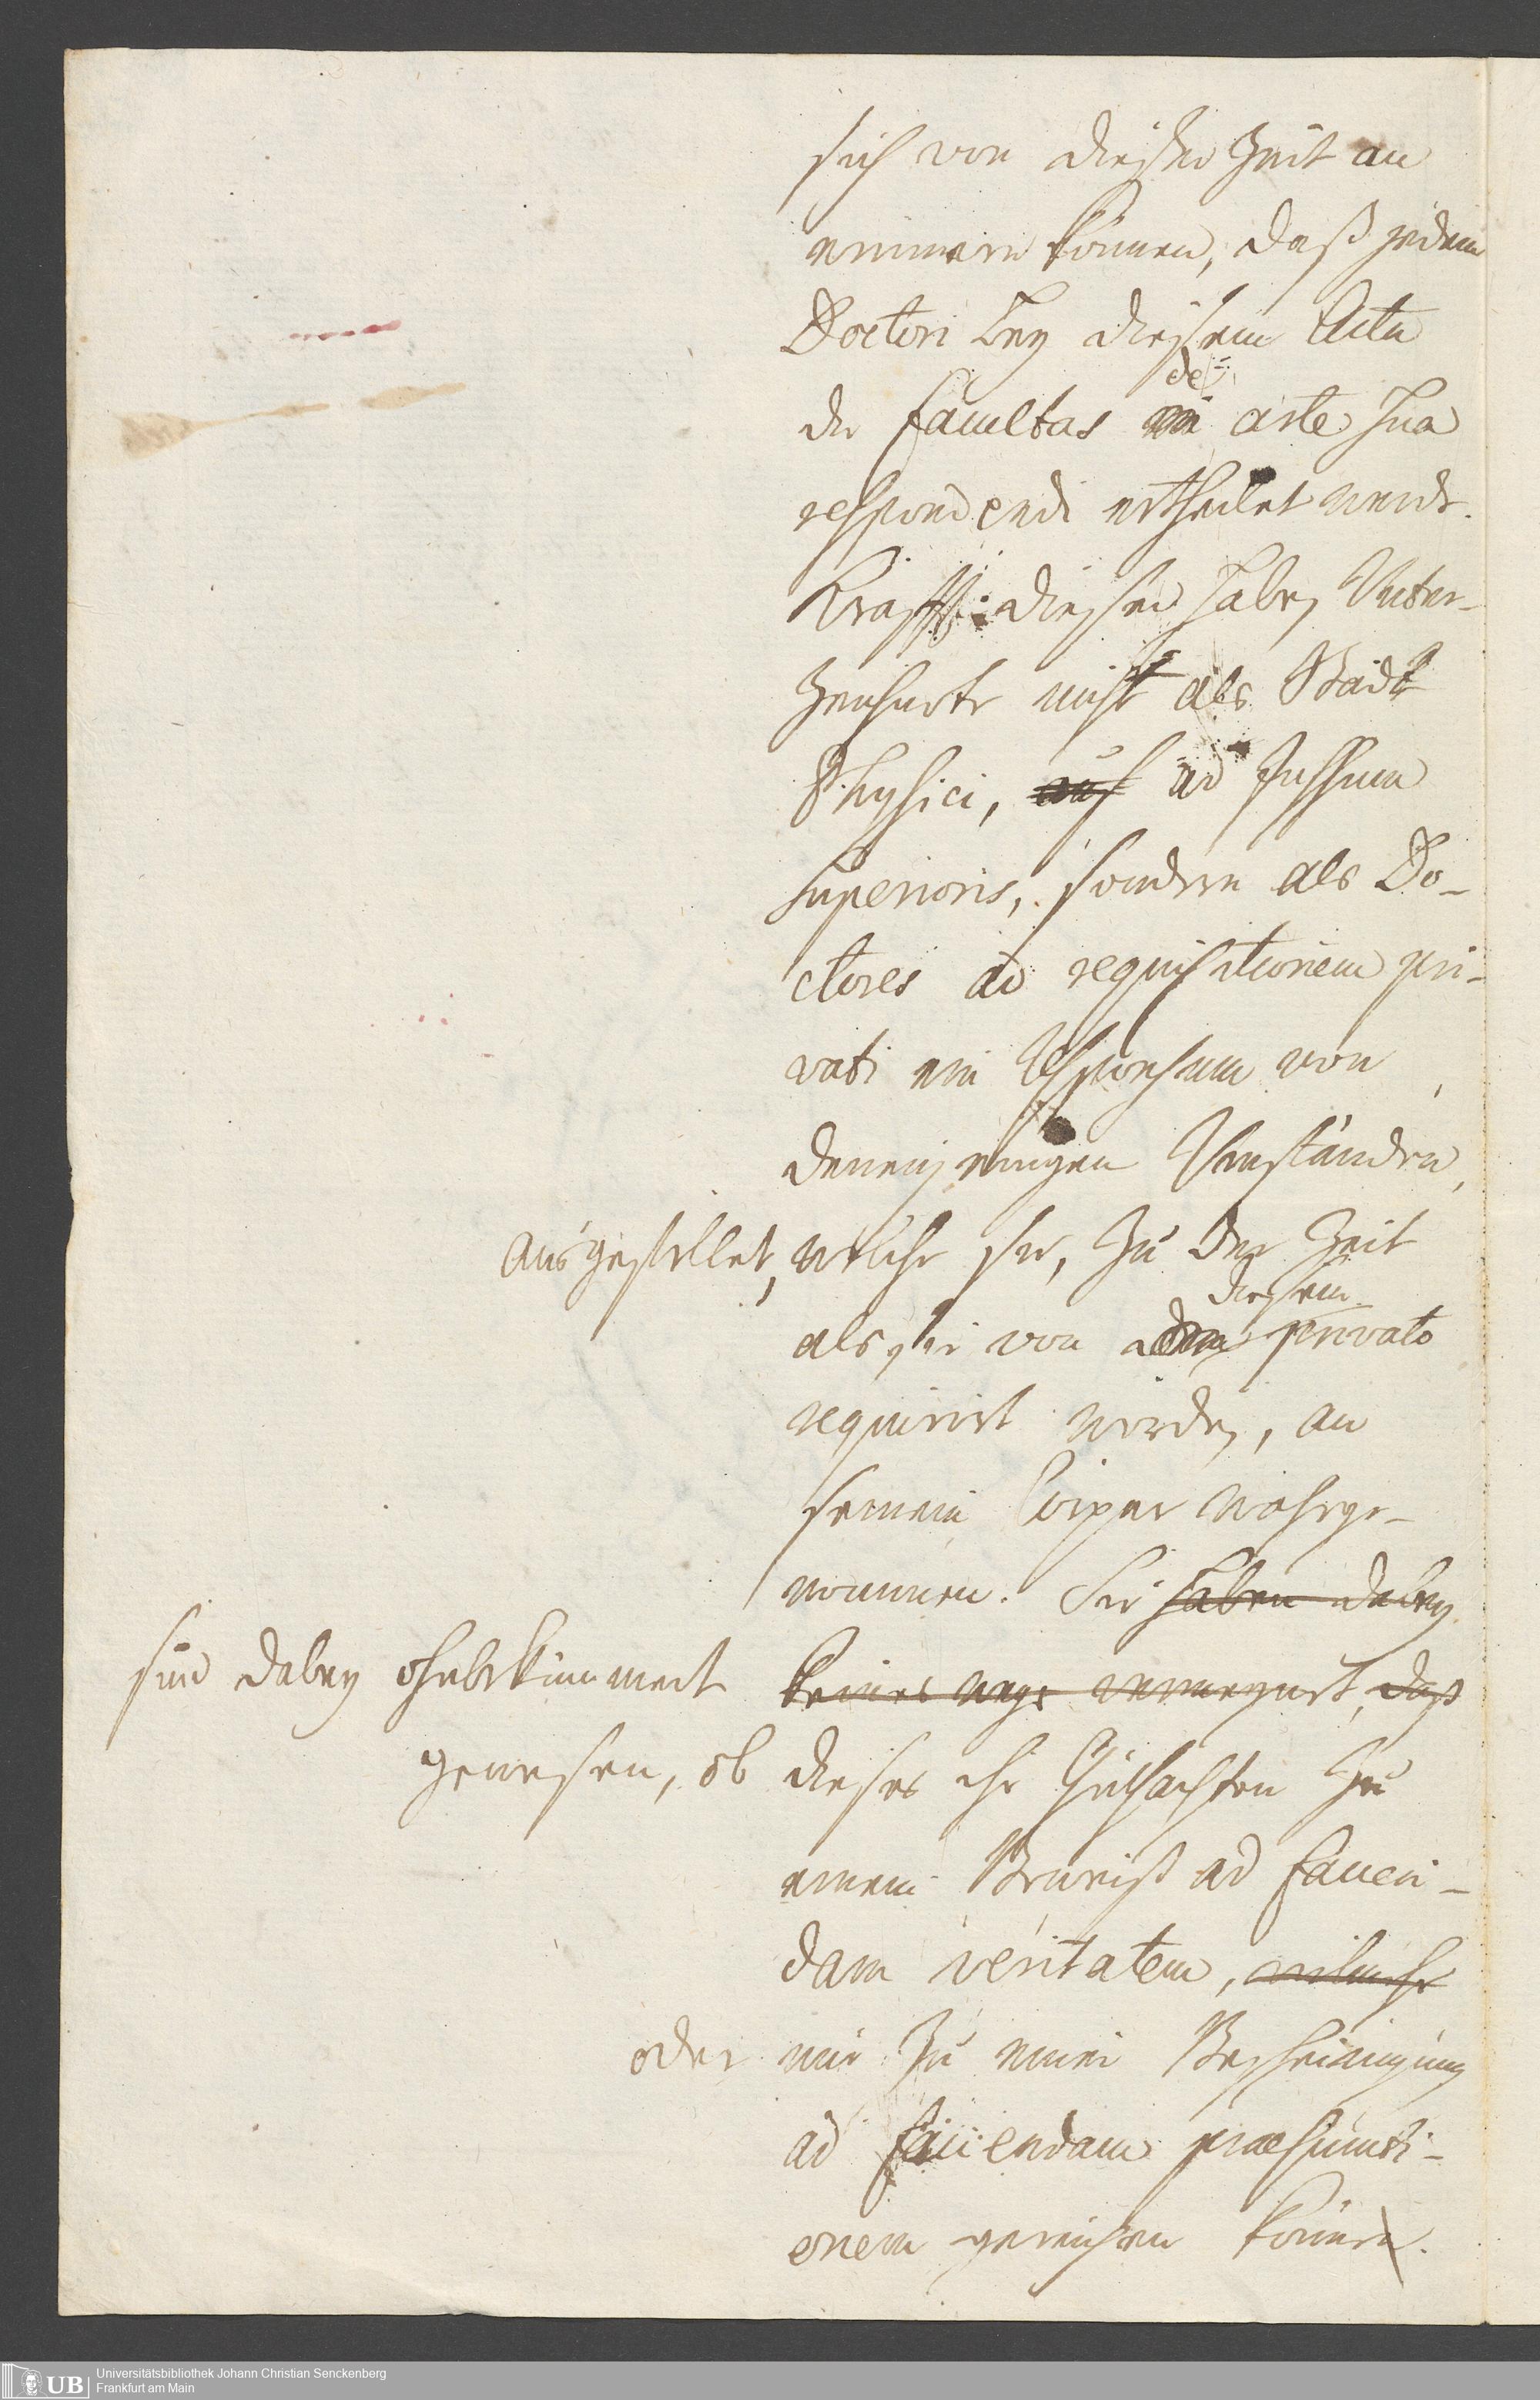 sich von dießer Zeit an
erinnern können, daß jedem
Doctori bey diesem Actu
die facultas de arte sua
respondendi ertheilet werde.
Krafft dießer haben Unter-
zeichnete nicht als Stadt
Physici, auf ad Jussum
superioris, sondern als Do-
ctores ad requisitionem pri-
vati ein Responsum von
denenjenigen Umständen,
ausgestellet, welche sie, zu der Zeit
als sie von diesem privato
requirirt worden, an
seinem Cörper wahrge-
nommen. Sie haben dabey
sind dabey ohnbekümmert keines wegs, daß
gewesen, ob dieses ihr Gutachten zu
einem Beweiß ad facien-
dam veritatem,
oder nur zu einer Bescheinigung
ad faciendam praesumti-
onem gereichen könne.
Universitätsbibliothek Johann Christian Senckenberg
UB Frankfurt am Main